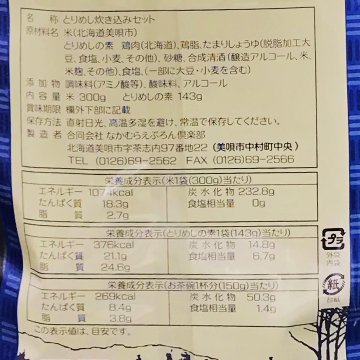 名 称 とりめし炊き込みセット
原材料名 米(北海道美唄市)
とりめしの素 鶏肉(北海道)、鶏脂、たまりしょうゆ(脱脂加工大
豆、食塩、小麦、その他)、砂糖、合成清酒(醸造アルコール、米、
米麹、その他)、食塩、(一部に大豆・小麦を含む)
添 加 物 調味料(アミノ酸等)、酸味料、アルコール
内 容 量 米 300g とりめしの素 143g
賞味期限 欄外下部に記載
保存方法 直射日光、高温多湿を避け、常温で保存してください。
製 造 者 合同会社 なかむらえぷろん倶楽部
北海道美唄市字茶志内97番地22 (美唄市中村町中央)
TEL (0126)69-2562 FAX (0126)66-7566
栄養成分表示(米1袋(300g)当たり)
エネルギー 1074kcal 炭水化物 232.8g
たんぱく質 18.3g 食塩相当量 0g
脂 質 2.7g
栄養成分表示(とりめしの素1袋(143g)当たり)
エネルギー 376kcal 炭水化物 14.8g
たんぱく質 21.1g 食塩相当量 6.7g
脂 質 24.6g
栄養成分表示(お茶碗1杯分(150g)当たり)
エネルギー 269kcal 炭水化物 50.3g
たんぱく質 8.4g 食塩相当量 1.4g
脂 質 3.8g
この表示値は、目安です。
プラ
外袋
内袋
紙
台紙